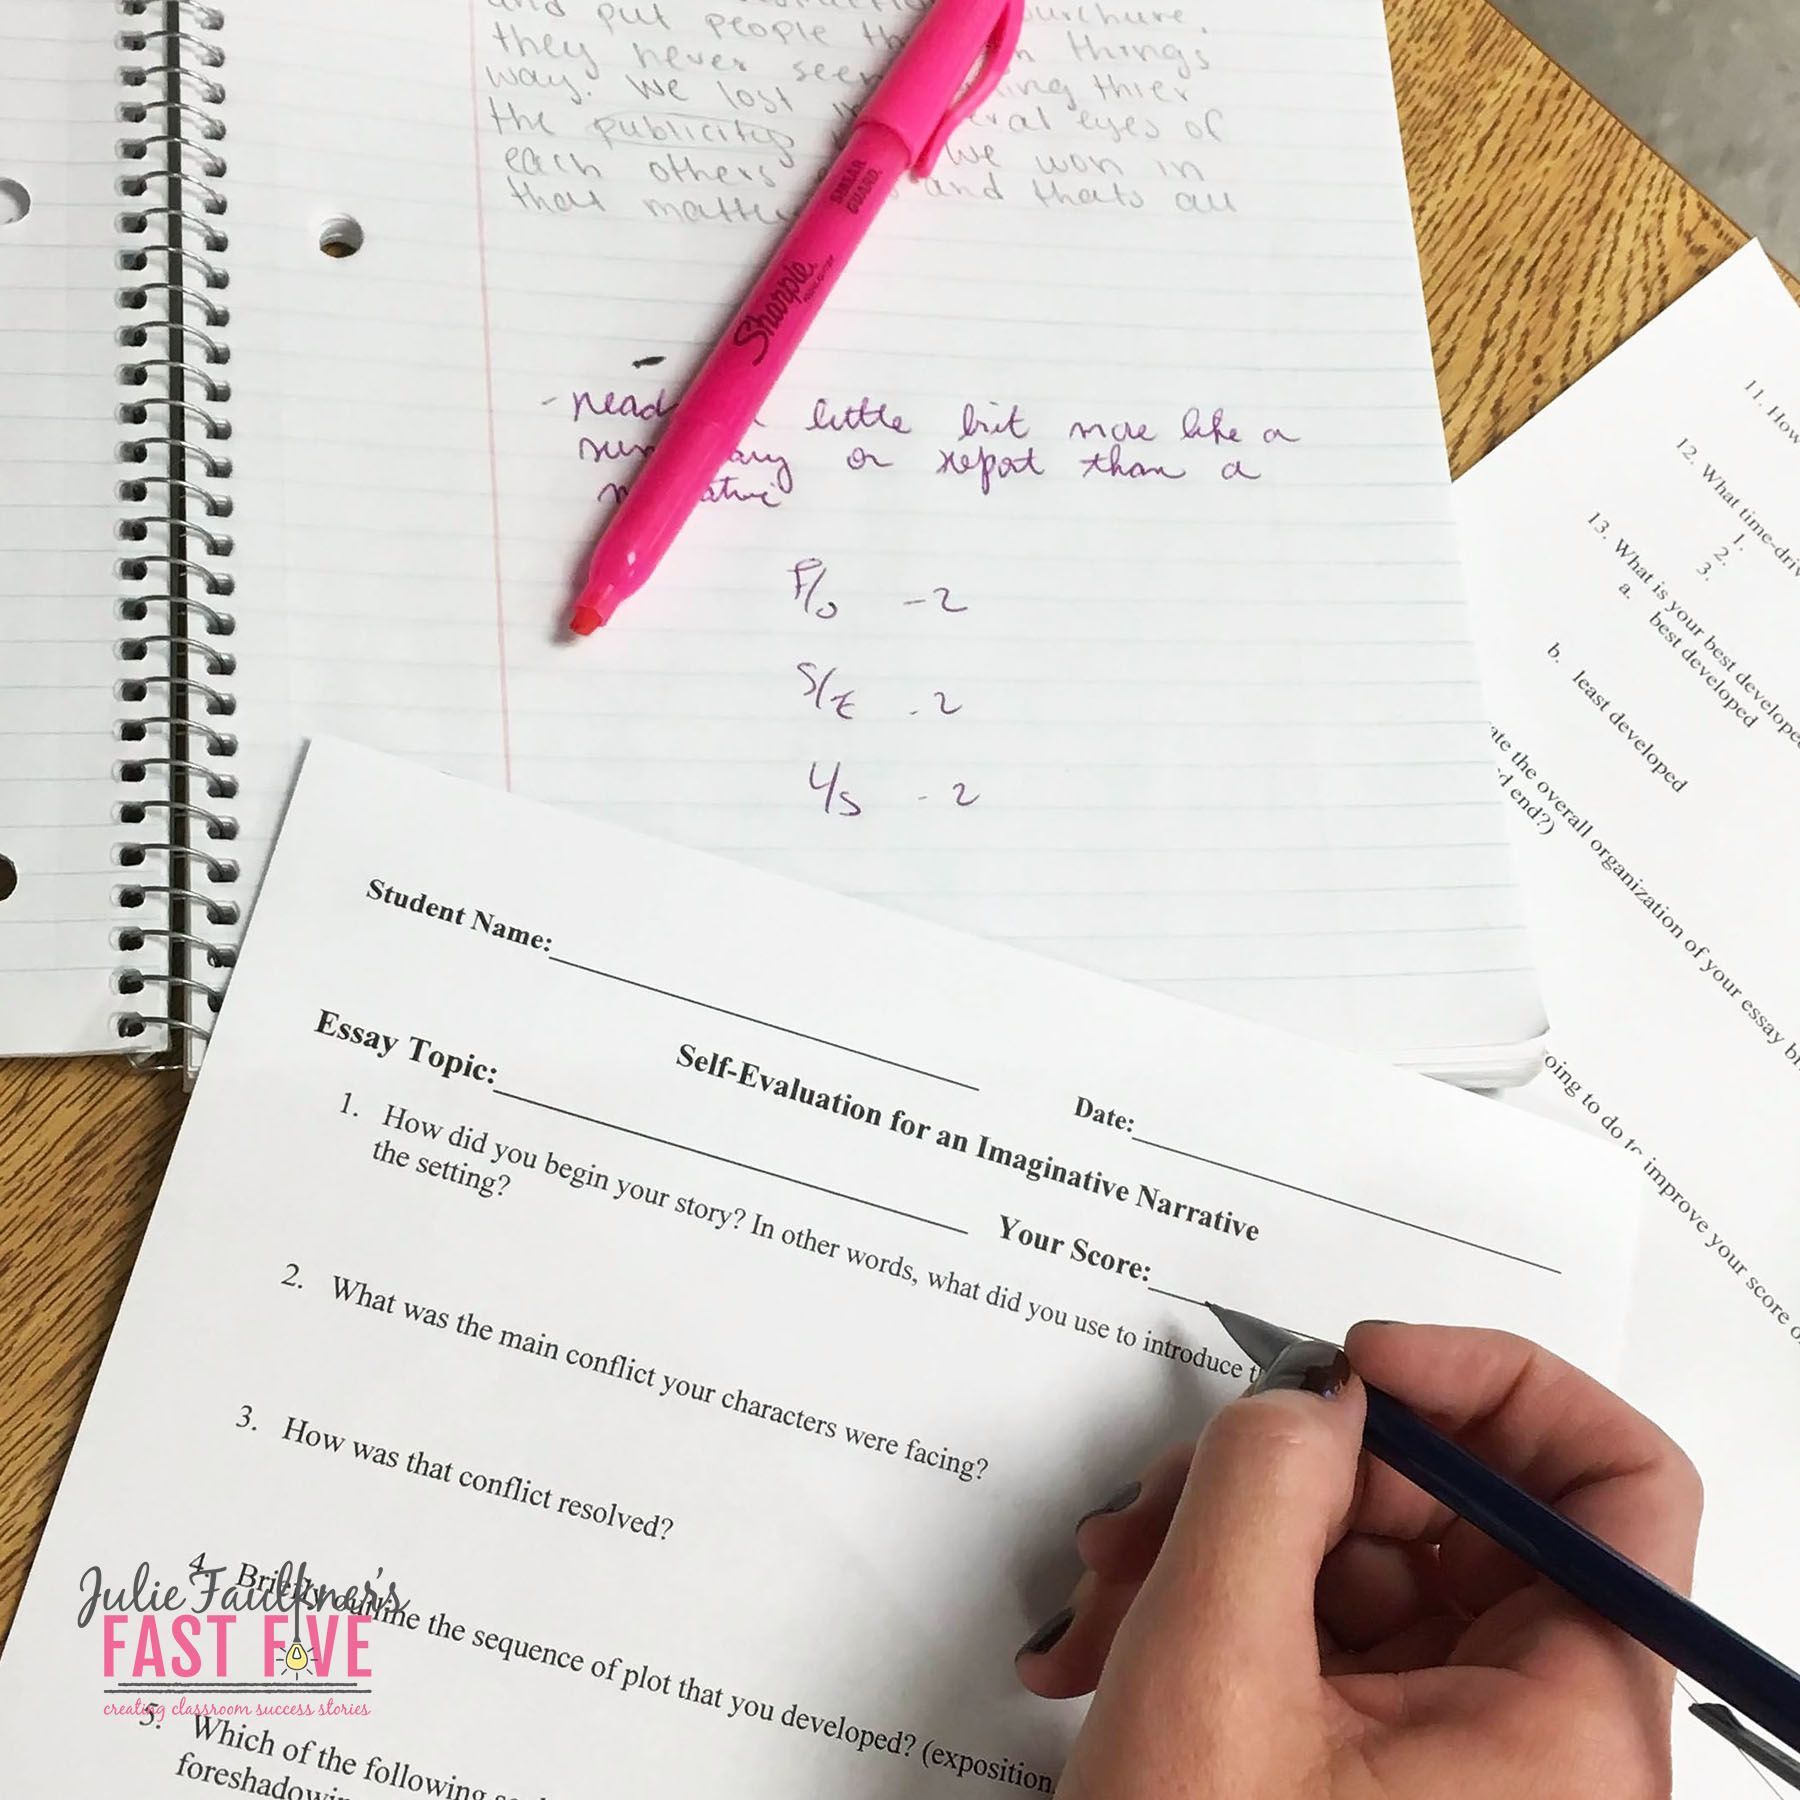 and put people th
they never seen things
way. We lost thier
the publicity eyes of
each others we won in
that matte and thats all
SMEAR
GUARD
Sharpie
- read little bit more like a
or report than a
P/O -2
S/E -2
L/S -2
11. How
12. What time-driv
1.
2.
3.
13. What is your best develope
a. best developed
b. least developed
ate the overall organization of your essay b
d end?)
oing to do to improve your score o
Student Name:
Date:
Self-Evaluation for an Imaginative Narrative
Essay Topic: Your Score:
1. How did you begin your story? In other words, what did you use to introduce t
the setting?
2. What was the main conflict your characters were facing?
3. How was that conflict resolved?
4. Briefly outline the sequence of plot that you developed? (exposition,
5. Which of the following
foreshadowin
Julie Faulkner's
FAST FIVE
creating classroom success stories